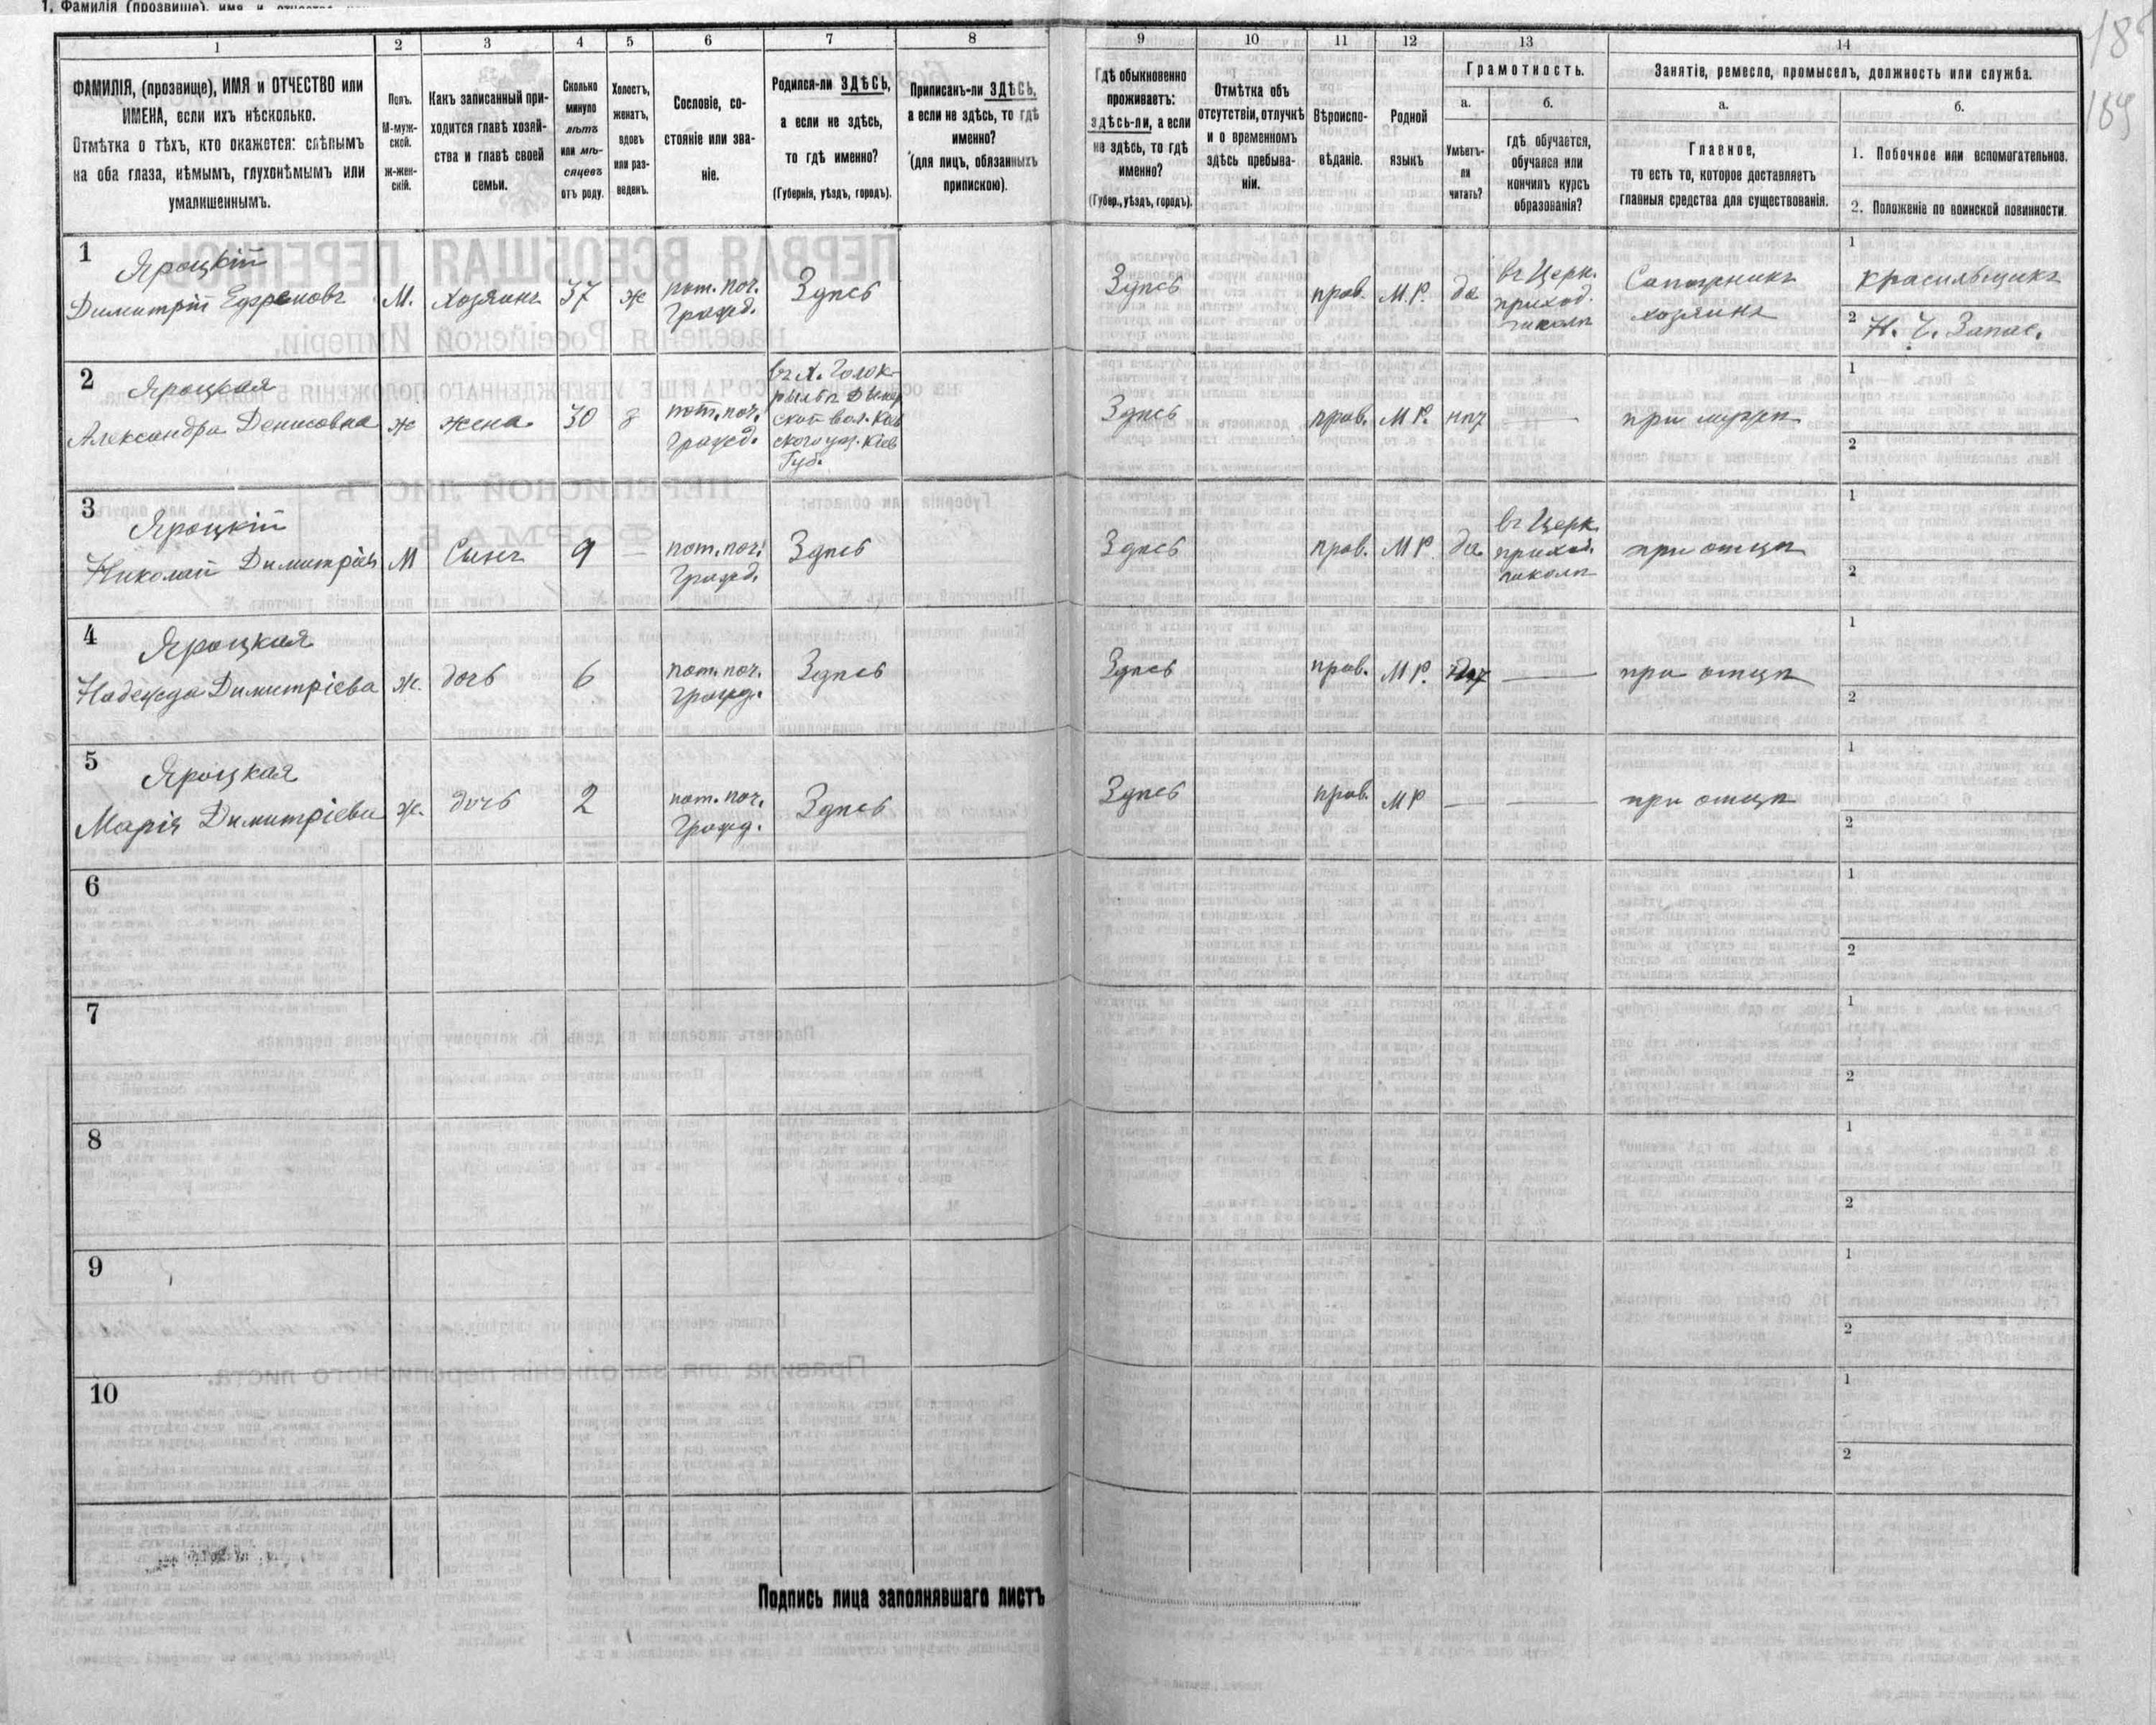 1. Фамилія (прозвище), имя и отчество
189
189
1
2
3
4
5
6
7
8
9
10
11
12
13
14
ФАМИЛІЯ, (прозвище), ИМЯ и ОТЧЕСТВО или
ИМЕНА, если ихъ нѣсколько.
Отмѣтка о тѣхъ, кто окажется: слѣпымъ
на оба глаза, нѣмымъ, глухонѣмымъ или
умалишеннымъ.
Полъ.
М-муж-
ской.
Ж-жен-
скій.
Какъ записанный при-
ходится главѣ хозяй-
ства и главѣ своей
семьи.
Сколько
минуло
лѣтъ
или мѣ-
сяцевъ
отъ роду.
Холостъ,
женатъ,
вдовъ
или раз-
веденъ.
Сословіе, со-
стояніе или зва-
ніе.
Родился-ли ЗДѢСЬ,
а если не здѣсь,
то гдѣ именно?
(Губернія, уѣздъ, городъ).
Приписанъ-ли ЗДѢСЬ,
а если не здѣсь, то гдѣ
именно?
(для лицъ, обязанныхъ
припискою).
Гдѣ обыкновенно
проживаетъ:
здѣсь-ли, а если
не здѣсь, то гдѣ
именно?
(Губер., уѣздъ, городъ).
Отмѣтка объ
отсутствіи, отлучкѣ
и о временномъ
здѣсь пребыва-
ніи.
Вѣроиспо-
вѣданіе.
Родной
языкъ
Грамотность.
а.
Умѣетъ-
ли
читать?
б.
гдѣ обучается,
обучался или
кончилъ курсъ
образованія?
Занятіе, ремесло, промыселъ, должность или служба.
а.
Главное,
то есть то, которое доставляетъ
главныя средства для существованія.
б.
1. Побочное или вспомогательное.
2. Положеніе по воинской повинности.
1
Яроцкій
Димитрій Ефремовъ
М.
Хозяинъ
37
ж
пот. поч.
Гражд.
Здѣсь
Здѣсь
прав.
М. Р.
да
въ Церк.
приход.
школѣ
Сапожникъ
хозяинъ
1
красильщикъ
2
Н. Ч. Запас.
2
Яроцкая
Александра Денисовна
ж
жена
30
з
пот. поч.
Гражд.
ской вол. Кіев
ского уѣз. Кіев
Губ.
Здѣсь
прав.
М Р.
нѣт
при мужѣ
1
2
3
Яроцкій
Николай Димитріев
М
Сынъ
9
пот. поч.
Гражд.
Здѣсь
Здѣсь
прав.
М Р.
да
въ Церк.
приход.
школѣ
при отцѣ
1
2
4
Яроцкая
Надежда Димитріева
ж.
дочь
6
пот. поч.
Гражд.
Здѣсь
Здѣсь
прав.
М Р.
при отцѣ
1
2
5
Яроцкая
Марія Димитріева
ж.
дочь
2
пот. поч.
Гражд.
Здѣсь
Здѣсь
прав.
М Р
при отцѣ
1
2
6
1
2
7
1
2
8
1
2
9
1
2
10
1
2
Подпись лица заполнявшаго листъ